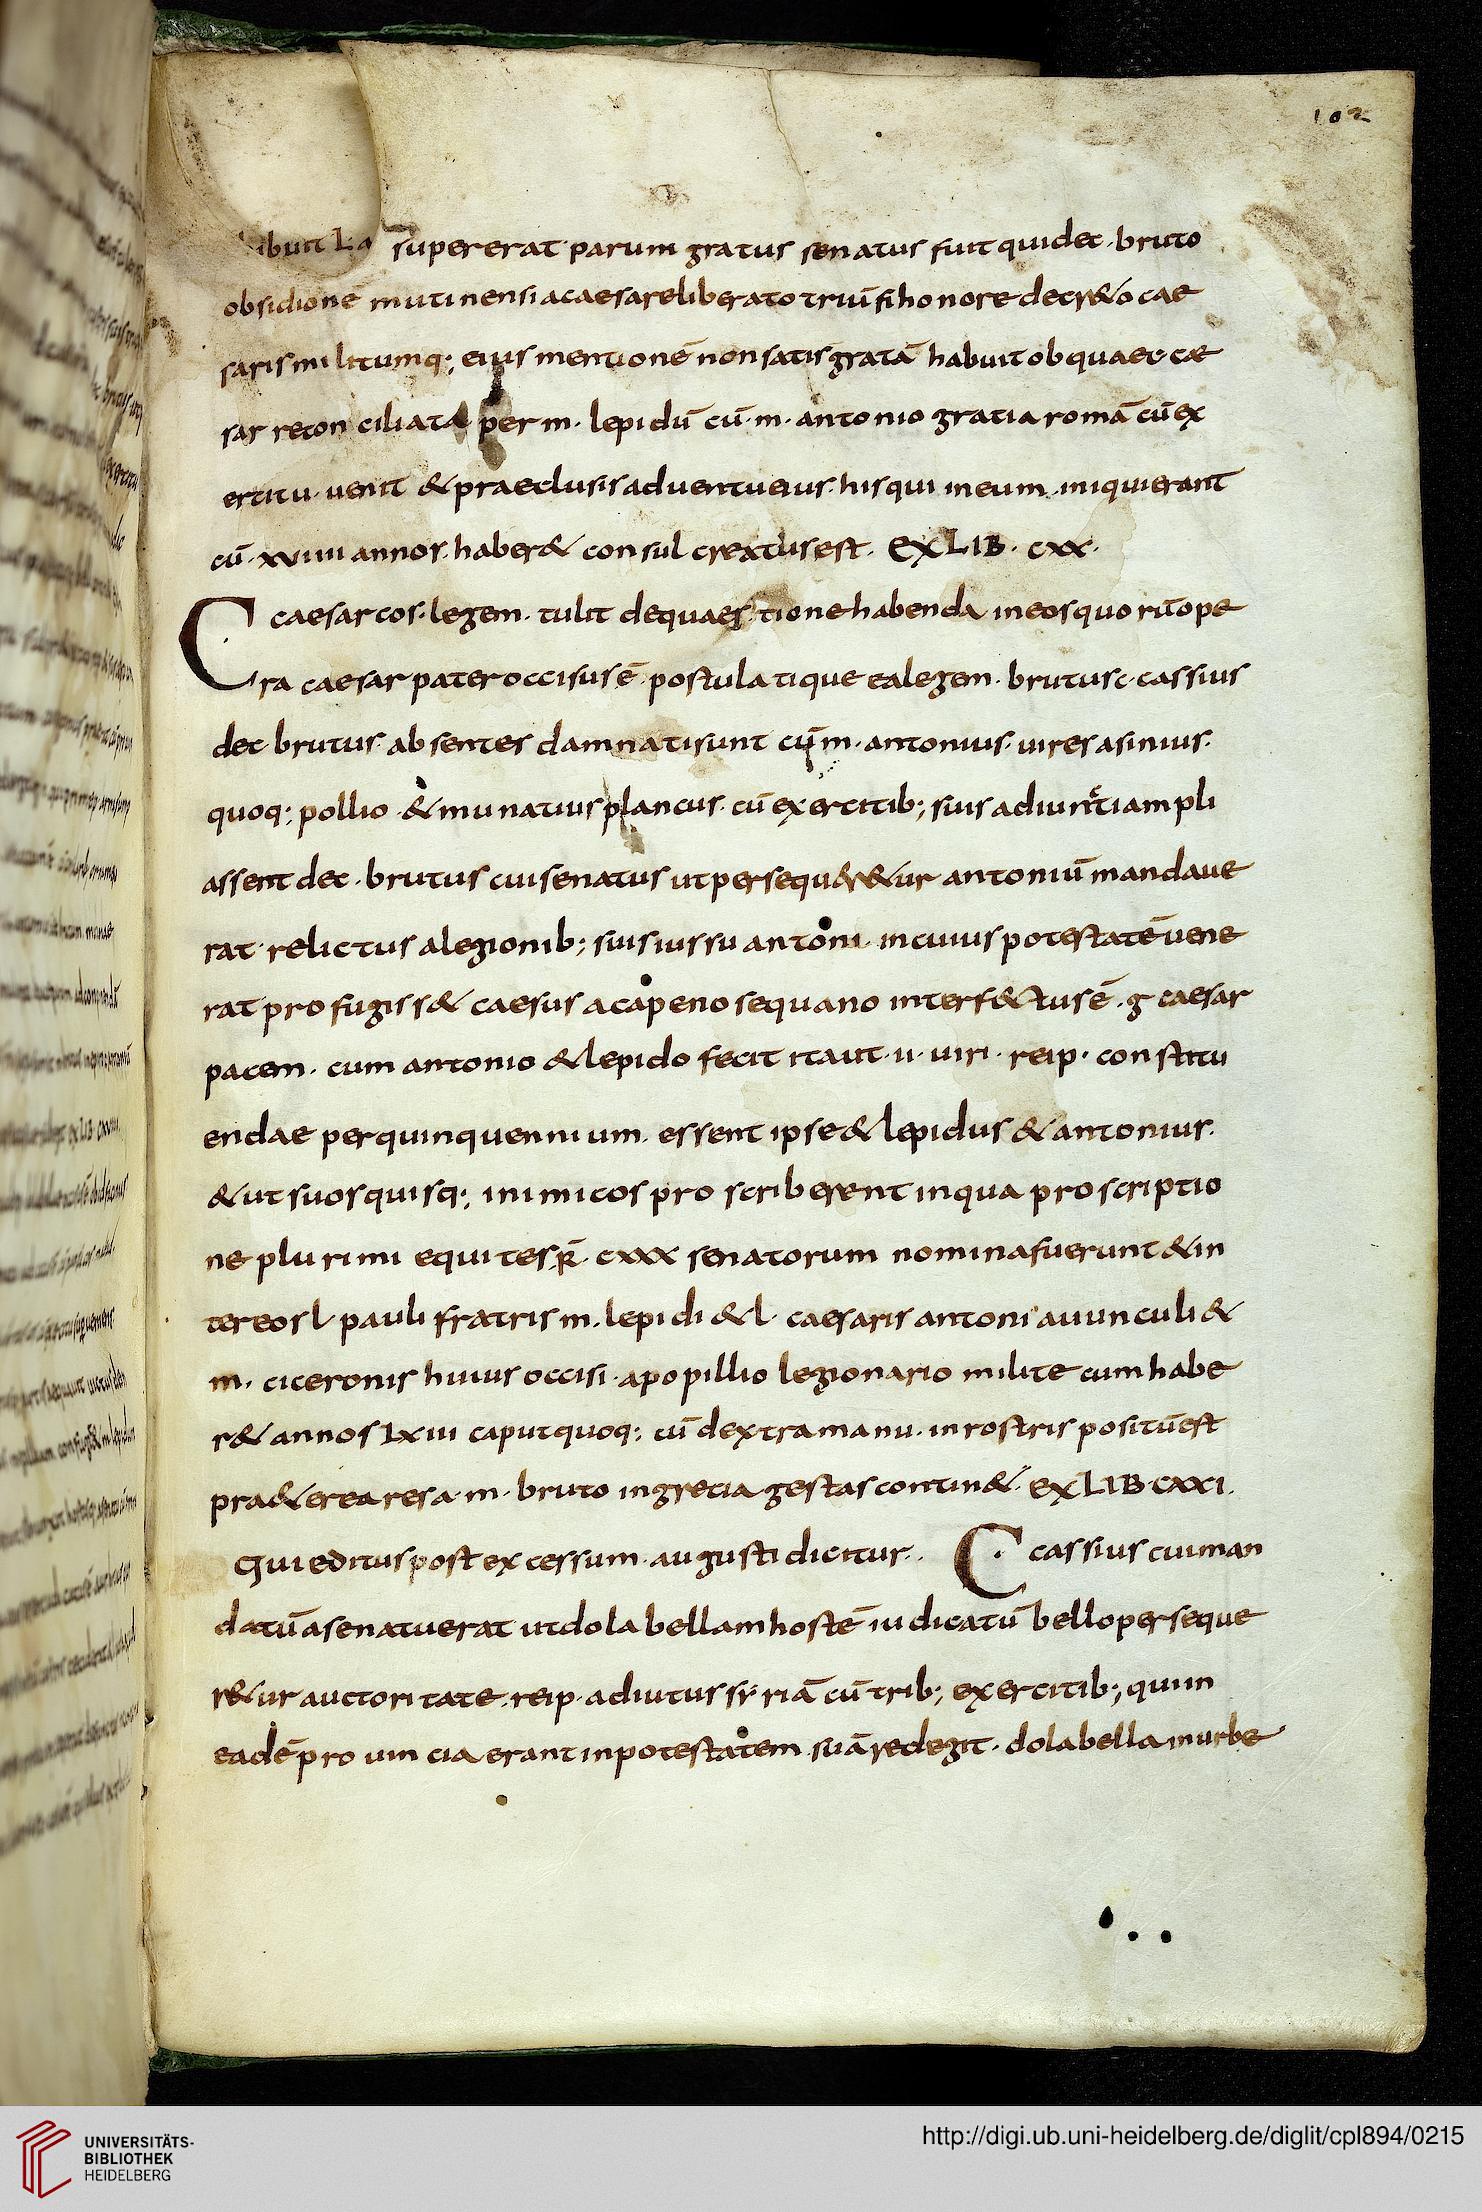 102
ibuit La supererat parum gratus senatus fuit qui dec · bruto
obsidionē mutinensi acaesareliberato triūfihonore decr&o cae
sarismilitumq; eius mentionē nonsatisgratā habuit ob quaec cae
sar reconciliata per m · lepidū cū · m · antonio gratia romā cū ex
ercitu · uenit & praeclusisaduentueius · hisqui ineum iniquierant
cū · xuiiii annor haber& consul creatus est · EX LIB · cxx ·
C caesar cos · legem · tulit dequaestione habenda ineosquorūope
ra caesar pater occisus ē postulatique ealegem · brutus c · cassius
dec brutus · absentes damnatisunt cū m · antonius · uires asinius ·
quoq; pollio & munatius plancus · cū exercitib; suis adiunctiampli
assent dec · brutus cuisenatus utpersequer&ur antoniū mandaue
rat · relictus alegionib; suisiussu antoni · incuius potestatē uene
rat profugiss& caesus acapeno sequano interf&tus ē · g caesar
pacem · cum antonio & lepido fecit itaut · ii · uiri · reip · constitu
endae perquinquennium · essent ipse & lepidus & antonius ·
& ut suos quisq; inimicos proscriberent inqua proscriptio
ne plurimi equites R · cxxx senatorum nominafuerunt & in
tereos l · pauli fratris m · lepidi & l · caesaris antoni auunculi &
m · ciceronis huius occisi · apopillio legionario milite cumhabe
r& annos Lxiii caputquoq; cū dextra manu · inrostris positūest
pra&erea resa · m · bruto ingrecia gestas contin& · EX LIB · CXXI ·
Qui editus post excessum · augusti dicitur · C cassius cuiman
datū asenatuerat utdolabellamhostē iudicatū belloperseque
r&ur auctoritate · reip · adiutus syriā cū trib; exercitib; quiin
eadē prouincia erant inpotestatem suāredegit · dolabella inurbe
UNIVERSITÄTS-
BIBLIOTHEK
HEIDELBERG
http://digi.ub.uni-heidelberg.de/diglit/cpl894/0215